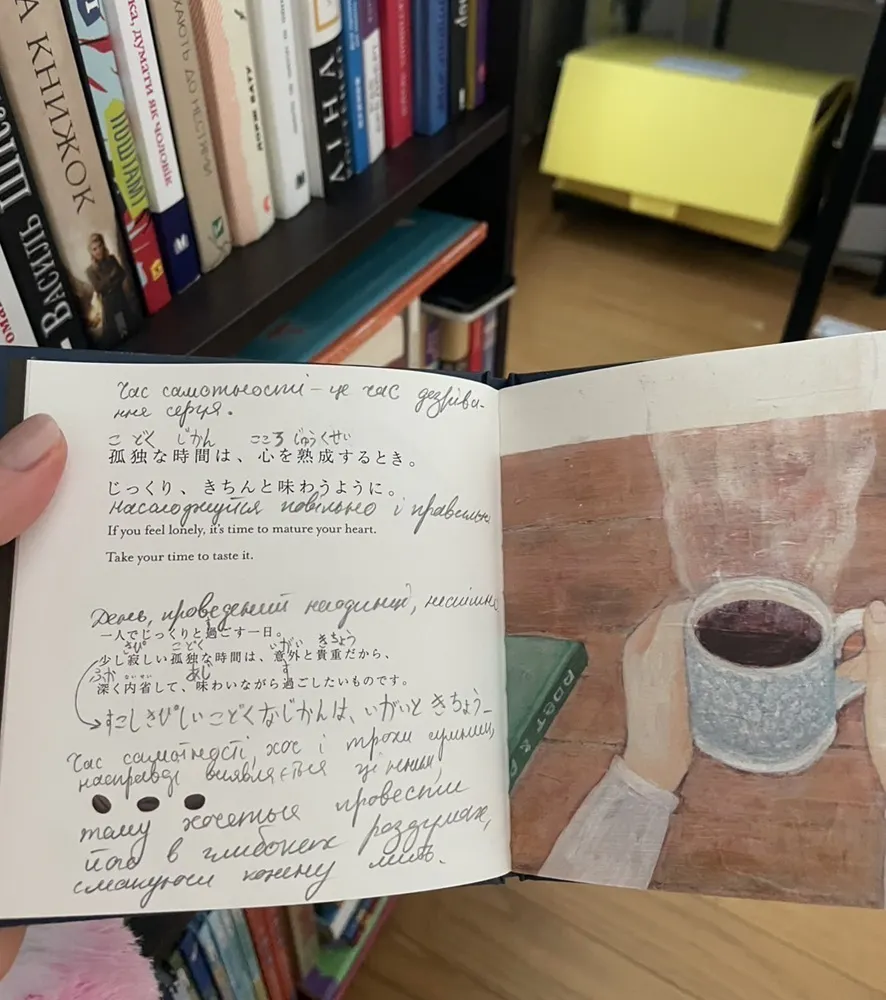 А КНИЖОК
ВАСИЛЬ ШКЛ
ПОШТАМТ
ка, думати як чоловік
ЛІНА
Час самотності – це час дозріва-
ння серця.
こ どく じかん こころ じゅくせい
孤独な時間は、心を熟成するとき。
じっくり、きちんと味わうように。
насолоджуйтся повільно і правильно
If you feel lonely, it's time to mature your heart.
Take your time to taste it.
День, проведений наодинці, неспішно
一人でじっくりと過ごす一日。
さび こどく いがい きちょう
少し寂しい孤独な時間は、意外と貴重だから、
ふか ないせい あじ す
深く内省して、味わいながら過ごしたいものです。
すこしさびしいこどくなじかんは、いがいときちょう–
Час самотності, хоч і трохи сумний,
насправді виявляється цінним,
тому хочеться провести
його в глибоких роздумах,
смакуючи кожну мить.
POET &